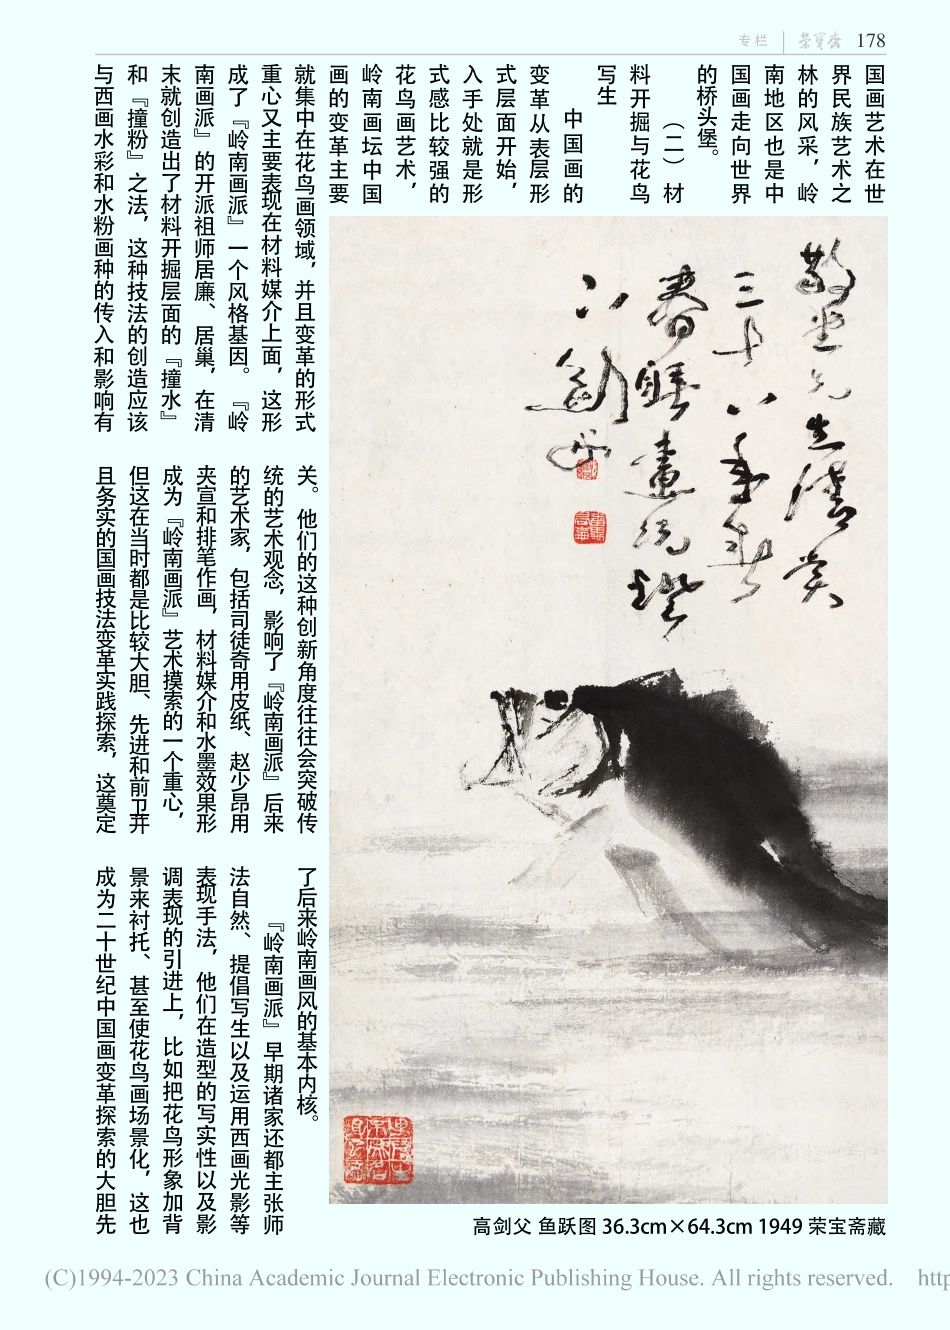 专栏 荣宝斋 178
国画艺术在世
界民族艺术之
林的风采，岭
南地区也是中
国画走向世界
的桥头堡。
（二）材
料开掘与花鸟
写生
中国画的
变革从表层形
式层面开始，
入手处就是形
式感比较强的
花鸟画艺术，
岭南画坛中国
画的变革主要
就集中在花鸟画领域，并且变革的形式
重心又主要表现在材料媒介上面，这形
成了『岭南画派』一个风格基因。『岭
南画派』的开派祖师居廉、居巢，在清
末就创造出了材料开掘层面的『撞水』
和『撞粉』之法，这种技法的创造应该
与西画水彩和水粉画种的传入和影响有
关。他们的这种创新角度往往会突破传
统的艺术观念，影响了『岭南画派』后来
的艺术家，包括司徒奇用皮纸、赵少昂用
夹宣和排笔作画，材料媒介和水墨效果形
成为『岭南画派』艺术摸索的一个重心，
但这在当时都是比较大胆、先进和前卫开
且务实的国画技法变革实践探索，这奠定
了后来岭南画风的基本内核。
『岭南画派』早期诸家还都主张师
法自然、提倡写生以及运用西画光影等
表现手法，他们在造型的写实性以及影
调表现的引进上，比如把花鸟形象加背
景来衬托、甚至使花鸟画场景化，这也
成为二十世纪中国画变革探索的大胆先
敬先生清賞
三十八年
春睡畫院燈
下
劍父
高剑父 鱼跃图 36.3cm×64.3cm 1949 荣宝斋藏
(C)1994-2023 China Academic Journal Electronic Publishing House. All rights reserved. http